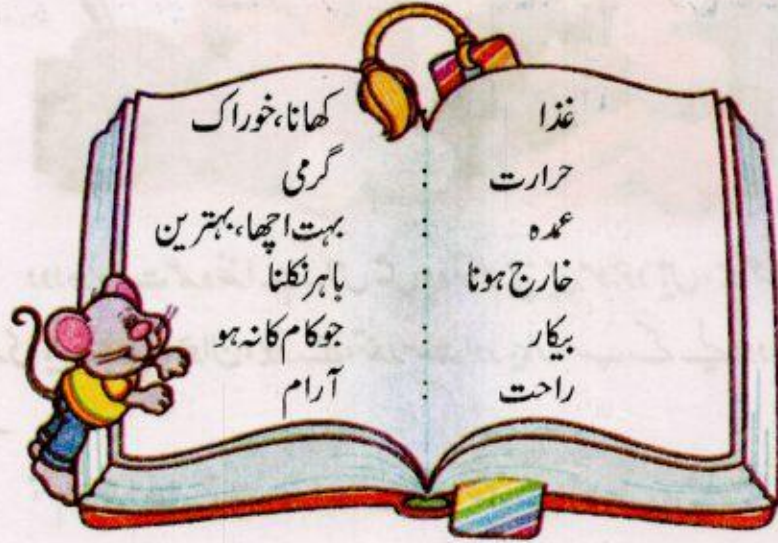 غذا کھانا،خوراک
حرارت : گرمی
عمدہ : بہت اچھا،بہترین
خارج ہونا : باہر نکلنا
بیکار : جو کام کا نہ ہو
راحت : آرام